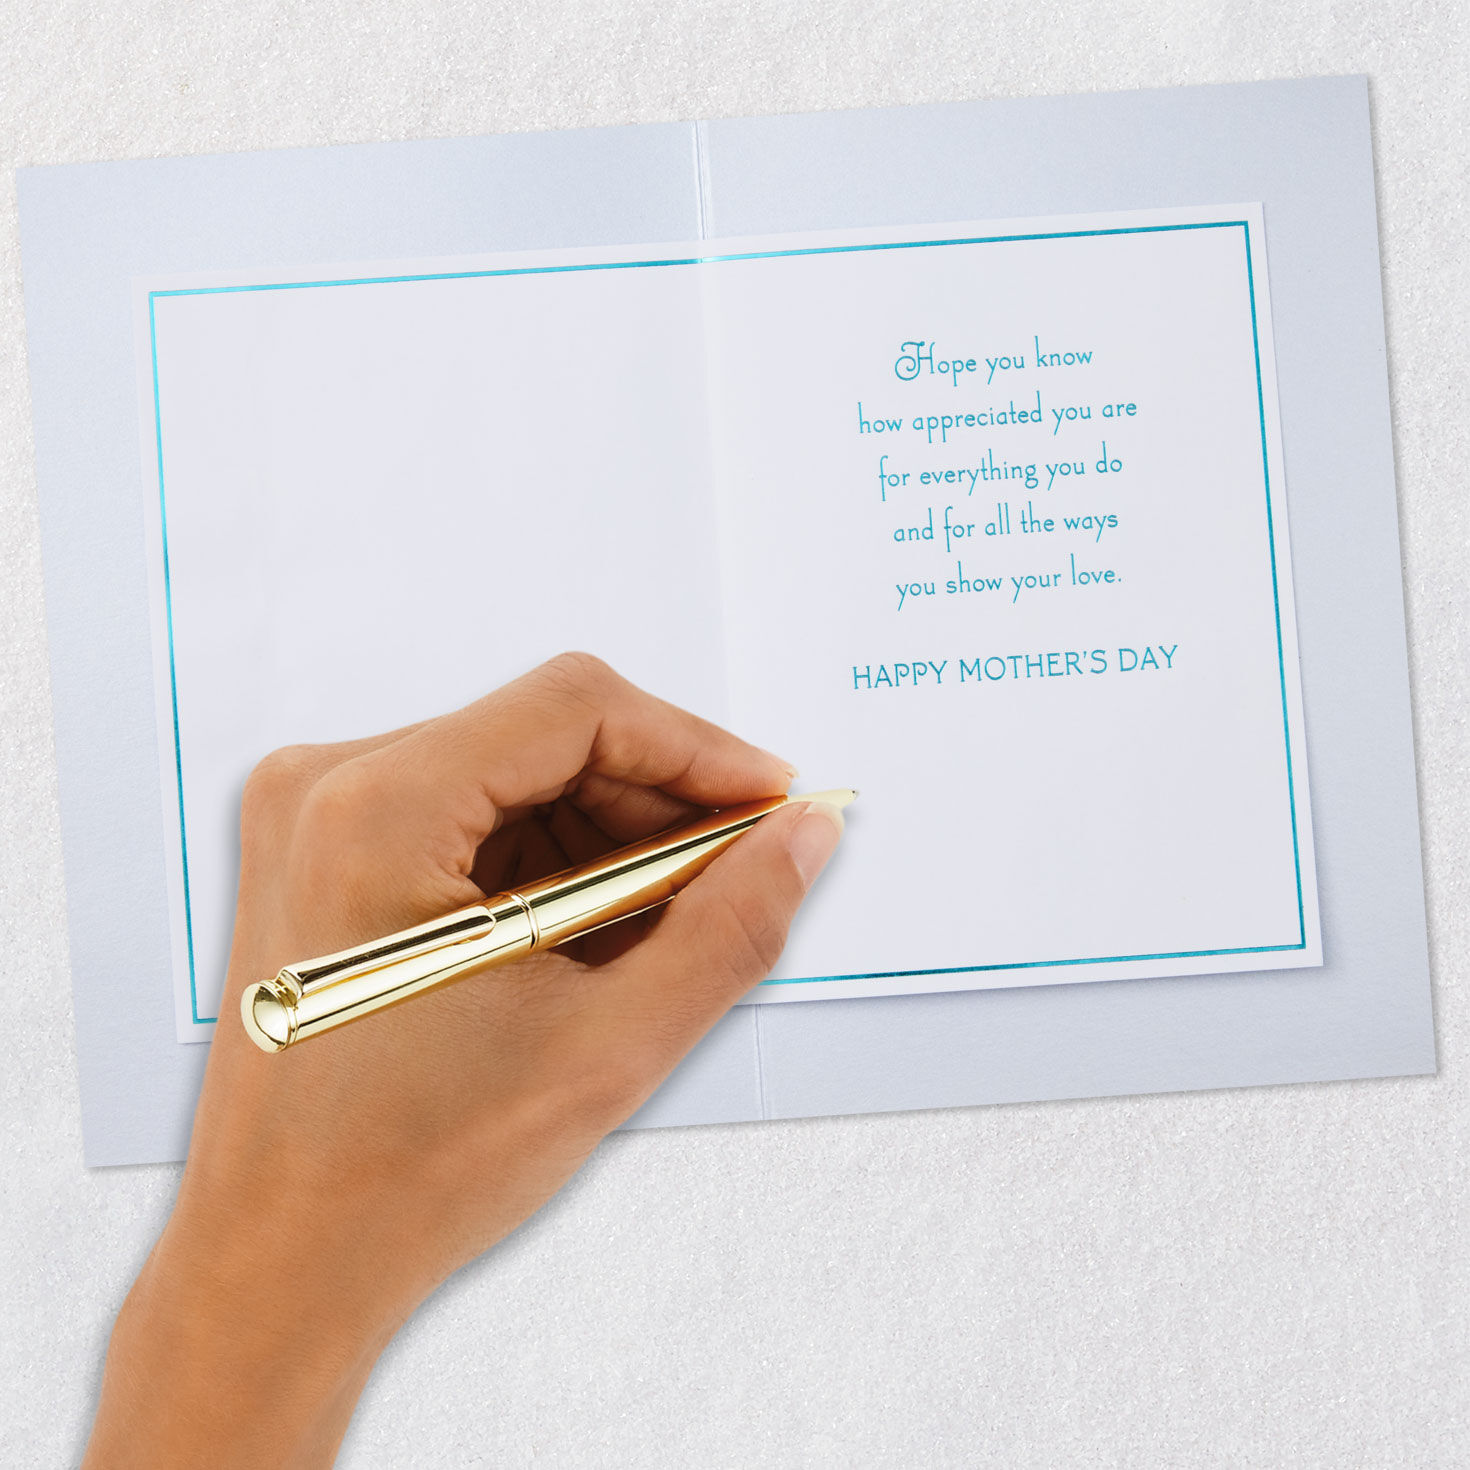 Hope you know
how appreciated you are
for everything you do
and for all the ways
you show your love.
HAPPY MOTHER'S DAY